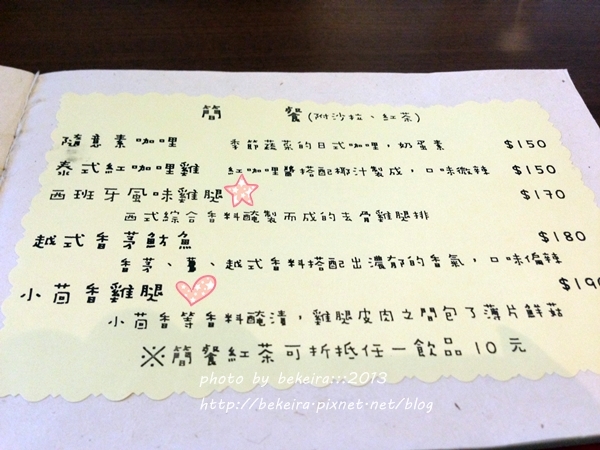 簡 餐(附沙拉、紅茶)
隨意素咖哩 季節蔬菜的日式咖哩，奶蛋素 $150
泰式紅咖哩雞 紅咖哩醬搭配椰汁製成，口味微辣 $150
西班牙風味雞腿 $170
西式綜合香料醃製而成的去骨雞腿排
越式香茅魴魚 $180
香茅、薑、越式香料搭配出濃郁的香氣，口味偏辣
小茴香雞腿 $190
小茴香等香料醃漬，雞腿皮肉之間包了薄片鮮菇
※簡餐紅茶可折抵任一飲品10元
photo by bekeira:::2013
http://bekeira.pixnet.net/blog